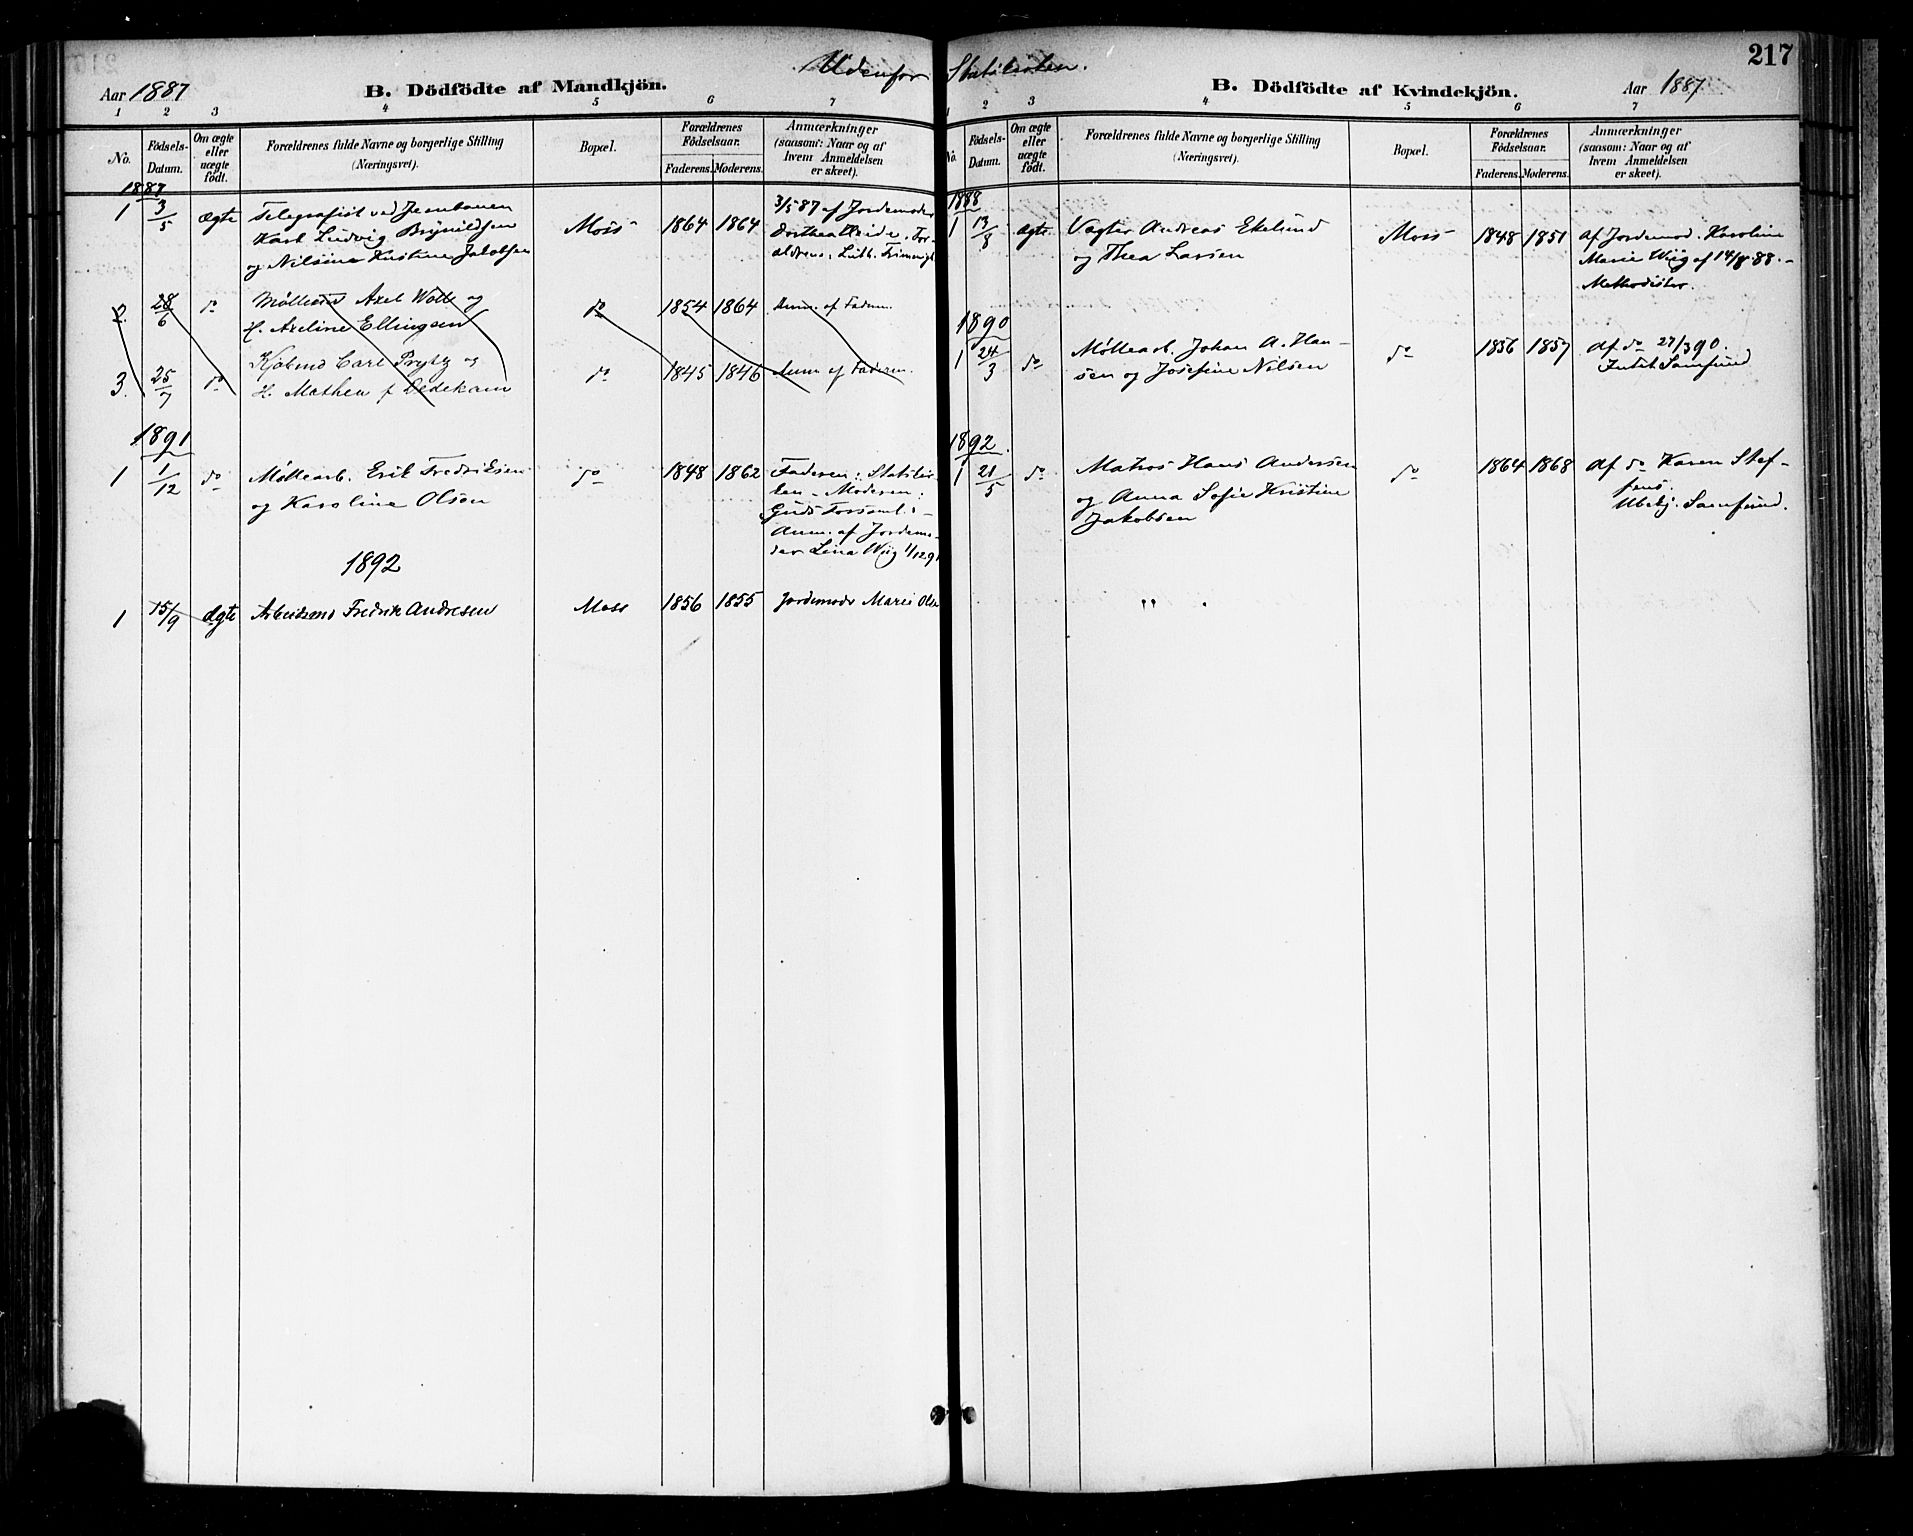 Udenfor Statskirken.
217
Aar 1887
B. Dödfödte af Mandkjön.
1 2 3 4 5 6 7
No.
Födsels-Datum.
Om ægte eller uægte födt.
Forældrenes fulde Navne og borgerlige Stilling (Næringsvei).
Bopæl.
Forældrenes Födselsaar.
Faderens. Moderens.
Anmærkninger (saasom: Naar og af hvem Anmeldelsen er skeet).
1887
1 3/5 ægte Telegrafist ved Jernbanen Moss 1864 1864 3/5 87 af Jordemoder
Karl Ludvig Brynildsen Dorthea For-
og Nilsine Kristine Jakobsen ældrene: Luth. Frimenigh
2. 28/6 do Axel Wolle og do 1854 1864 Anm. af Faderen.
H. Axeline Ellingsen
3. 25/7 do Kjöbmd Carl Prytz og do 1845 1846 Anm af Faderen.
H. Mathea f Dedekam
1891
1 1/12 do Møllearb. Erik Fredriksen do 1848 1862 Faderen: Statskir-
og Karoline Olsen ken – Moderen:
Guds Forsaml: –
Anm. af Jordemo-
der Lina Wiig 1/12 91
1892
1 15/9 Ægte Arbeidsmd Fredrik Andresen Moss 1856 1855 Jordemodr Marie Olsen
B. Dödfödte af Kvindekjön.
Aar 1887
1 2 3 4 5 6 7
No.
Födsels-Datum.
Om ægte eller uægte födt.
Forældrenes fulde Navne og borgerlige Stilling (Næringsvei).
Bopæl.
Forældrenes Födselsaar.
Faderens. Moderens.
Anmærkninger (saasom: Naar og af hvem Anmeldelsen er skeet).
1888
1 13/8 ægte Vagter Andreas Ekelund Moss 1848 1851 Af Jordemod. Karoline
og Thea Larsen Marie Wiig af 14/8 88. –
Methodister.
1890
1 24/3 do Møllearb. Johan A. Han- do 1856 1857 Af do 27/3 90.
sen og Josefine Nilsen Intet Samfund
1892.
1 21/5 do Matros Hans Andersen do 1864 1868 Af do Karen Stef-
og Anna Sofie Kristine fens.
Jakobsen Ubekj. Samfund.
" .